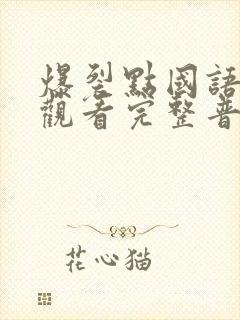 爆裂點國語
觀看完整普
花心猫